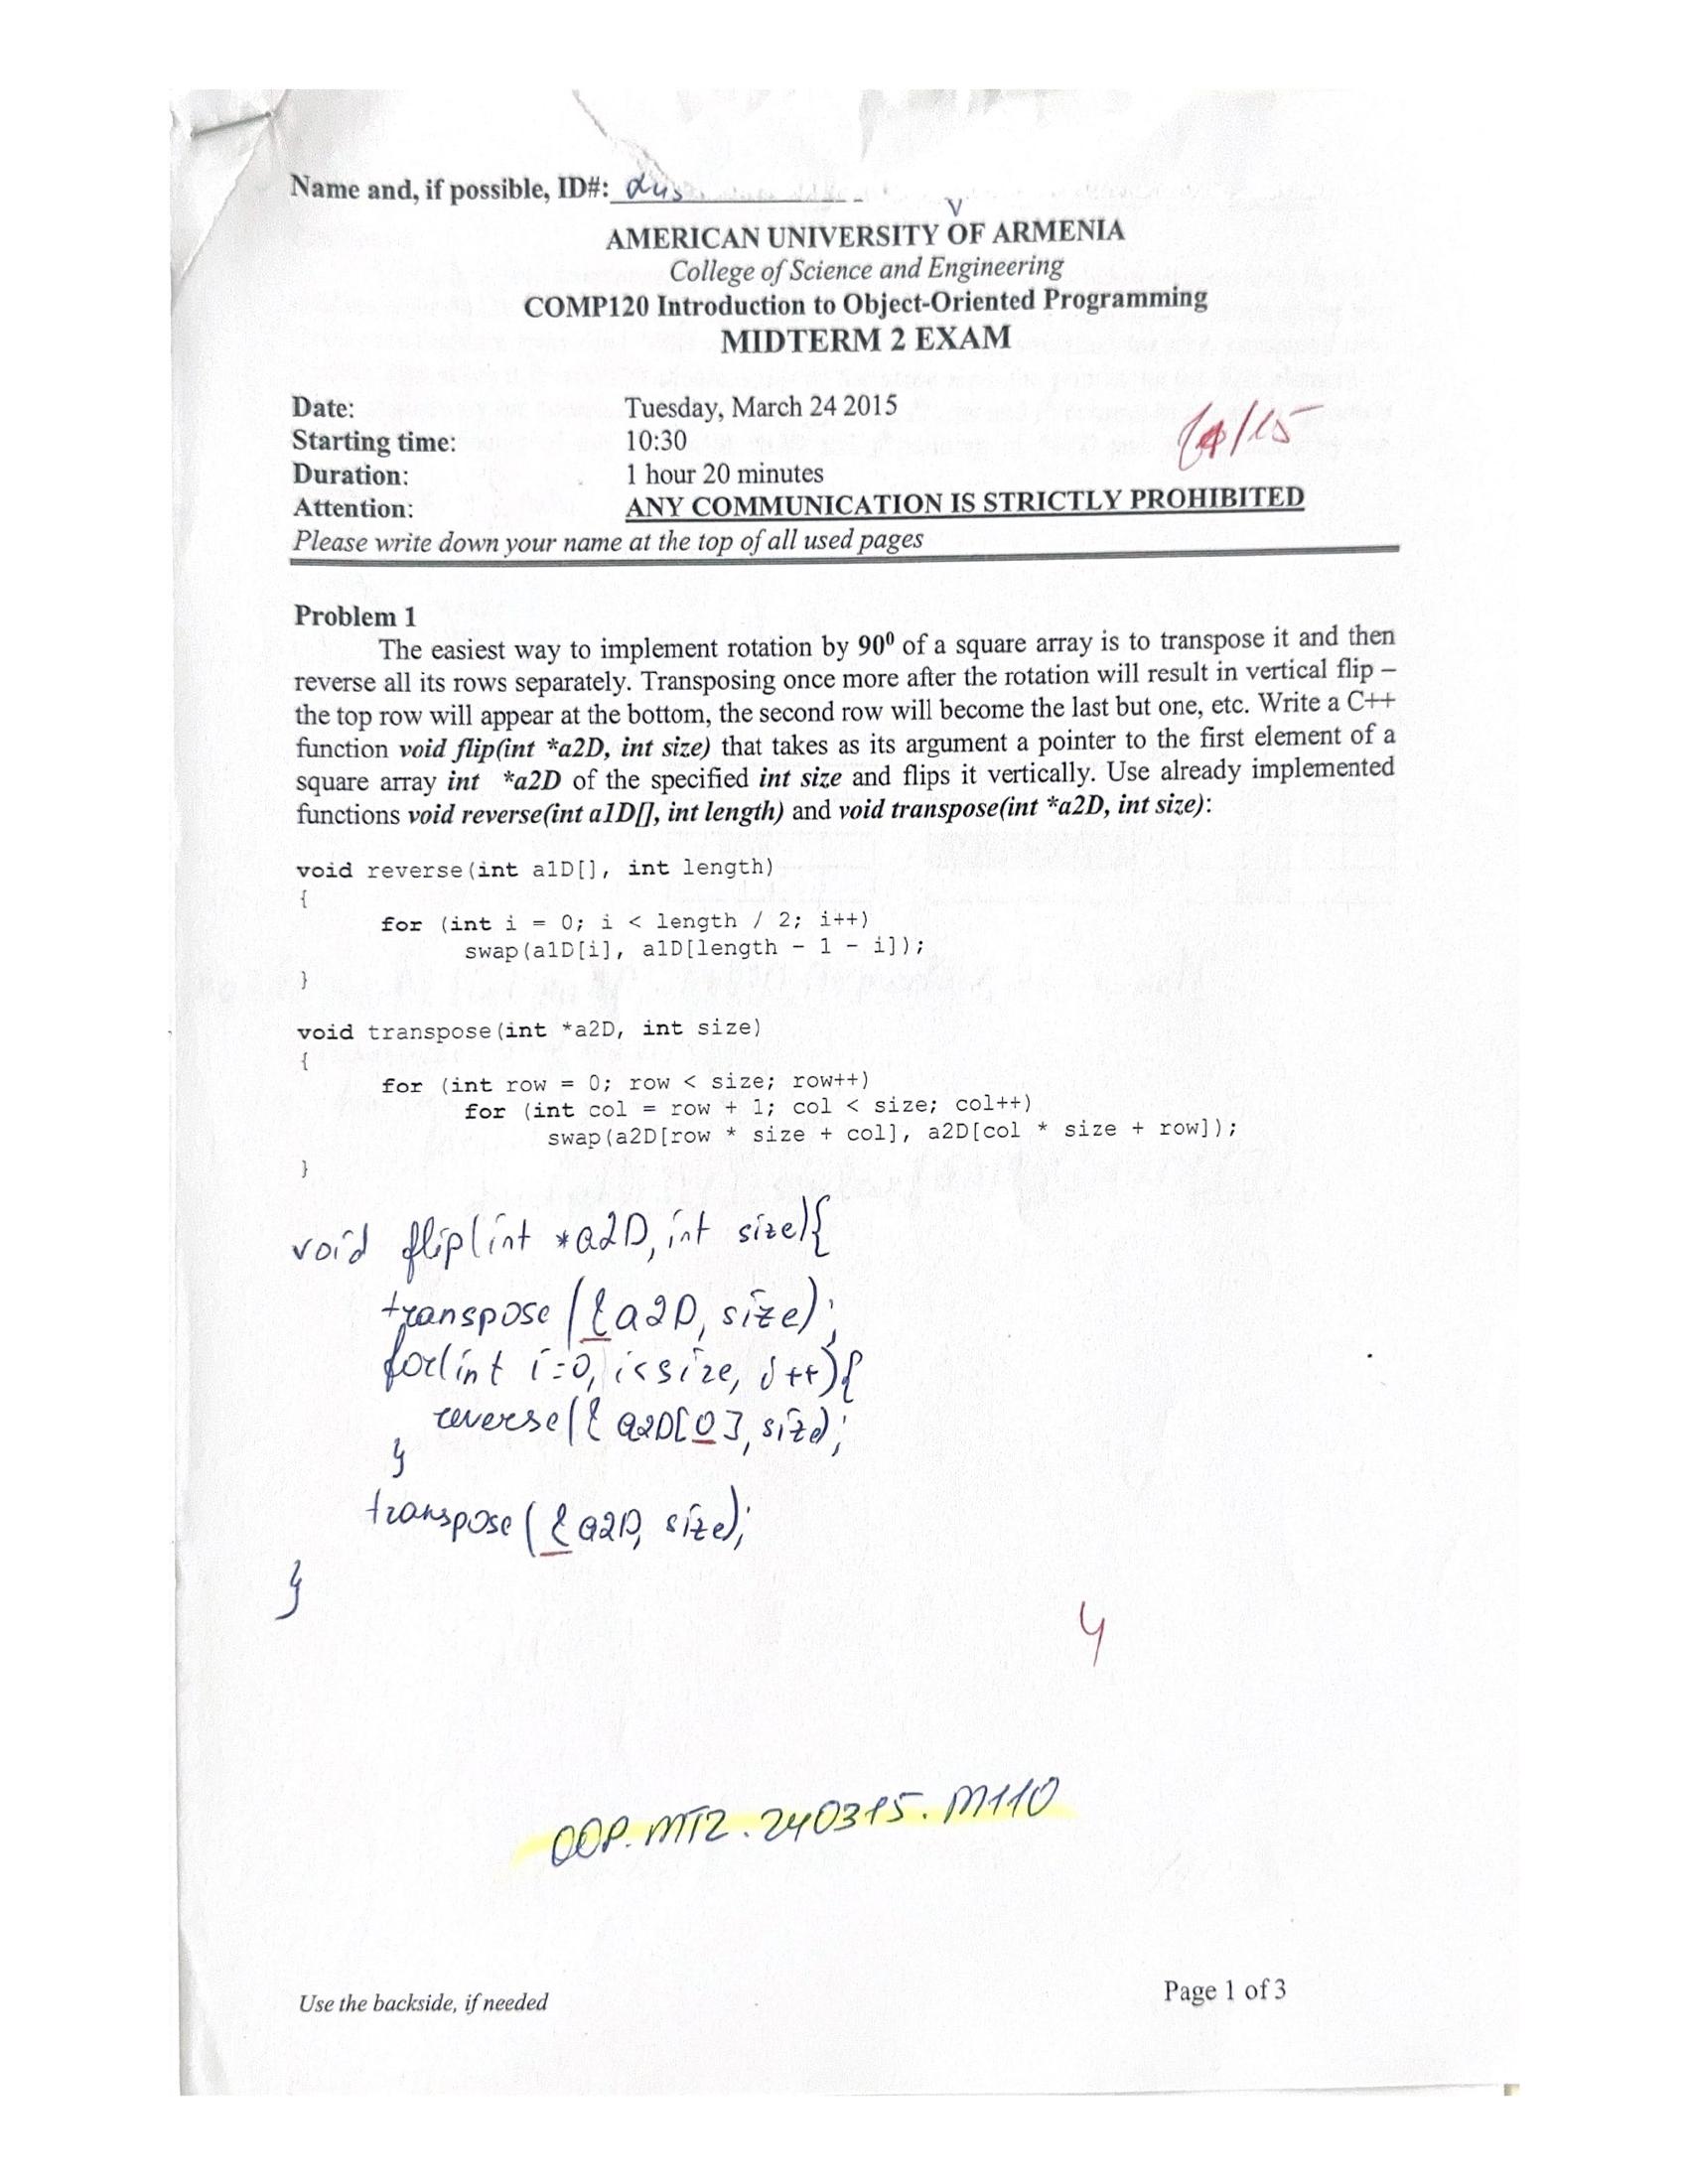 Name and, if possible, ID#:
V
AMERICAN UNIVERSITY OF ARMENIA
College of Science and Engineering
COMP120 Introduction to Object-Oriented Programming
MIDTERM 2 EXAM
Date: Tuesday, March 24 2015
Starting time: 10:30
Duration: 1 hour 20 minutes
Attention: ANY COMMUNICATION IS STRICTLY PROHIBITED
Please write down your name at the top of all used pages
Problem 1
The easiest way to implement rotation by 90⁰ of a square array is to transpose it and then
reverse all its rows separately. Transposing once more after the rotation will result in vertical flip –
the top row will appear at the bottom, the second row will become the last but one, etc. Write a C++
function void flip(int *a2D, int size) that takes as its argument a pointer to the first element of a
square array int *a2D of the specified int size and flips it vertically. Use already implemented
functions void reverse(int a1D[], int length) and void transpose(int *a2D, int size):
void reverse(int a1D[], int length)
{
for (int i = 0; i < length / 2; i++)
swap(a1D[i], a1D[length - 1 - i]);
}
void transpose(int *a2D, int size)
{
for (int row = 0; row < size; row++)
for (int col = row + 1; col < size; col++)
swap(a2D[row * size + col], a2D[col * size + row]);
}
void flip(int *a2D, int size){
transpose(&a2D, size);
for(int i=0, i<size, i++){
reverse(& a2D[0], size);
}
transpose(&a2D, size);
}
4
OOP.MT2.240315.M110
Use the backside, if needed
Page 1 of 3